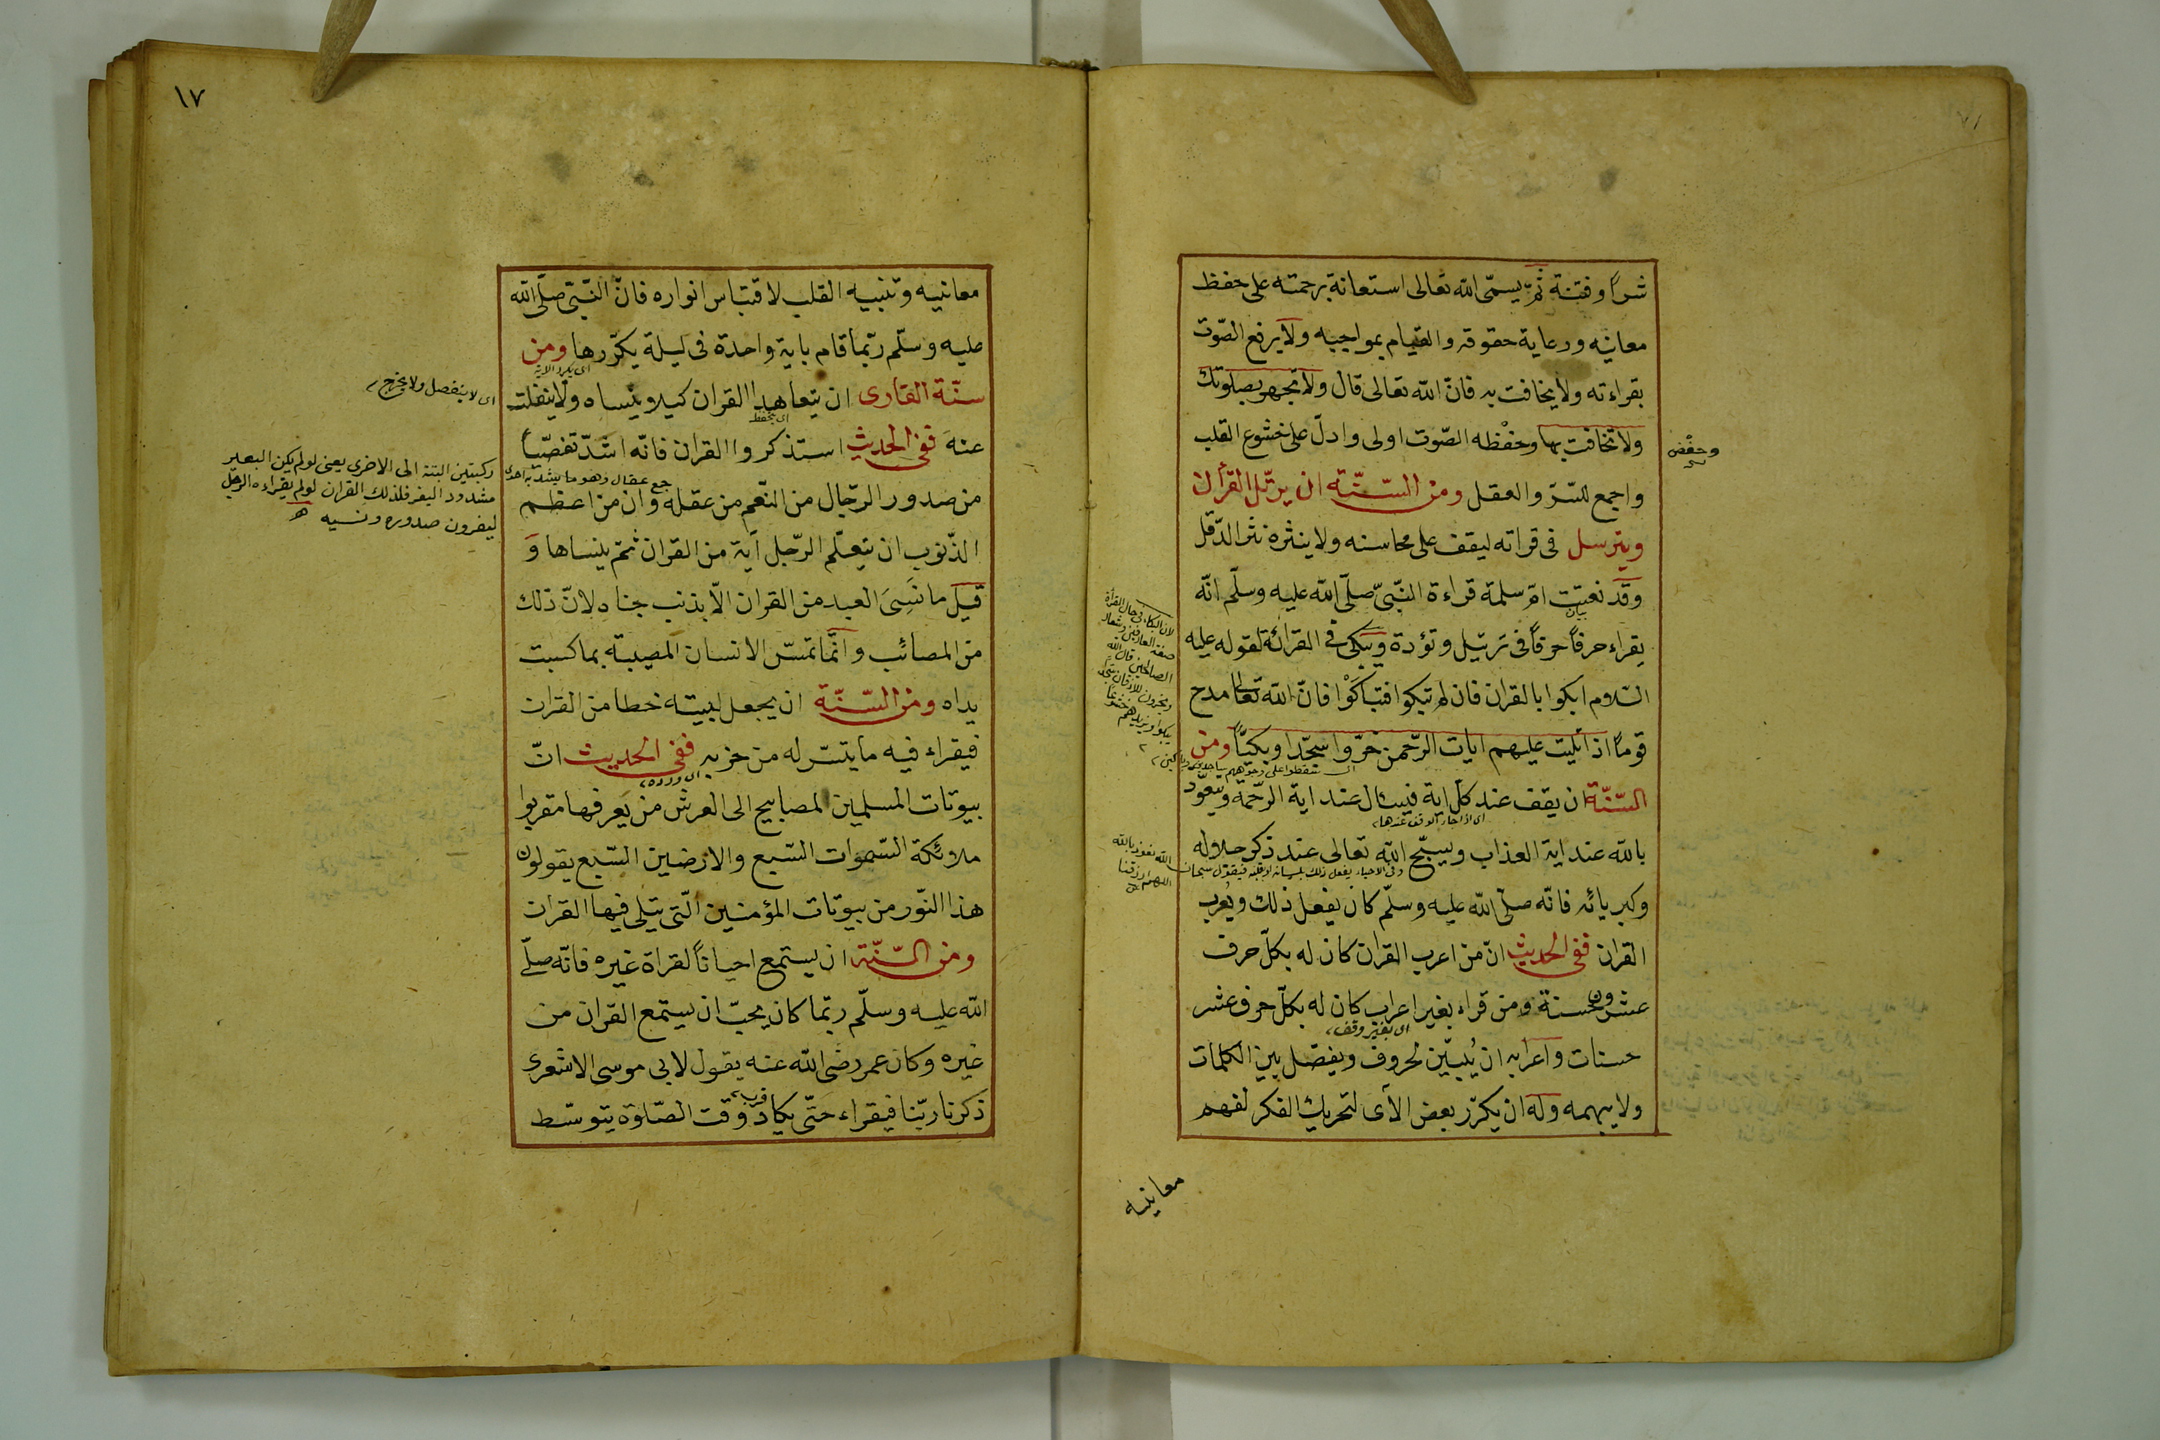 شرًا وفتنة ثمّ يسمّى الله تعالى استعانة برحمته على حفظ
معانيه ورعاية حقوقه والقيام بمواجبه ولا يرفع الصّوت
بقراءته ولا يخافت به فانّ الله تعالى قال ولا تجهر بصلوتك
ولا تخافت بها وحفظه الصّوت اولى وادلّ على خشوع القلب
وحفض
واجمع للسّرّ والعقل ومن السّنّة ان يرتّل القرآن
ويترسل فى قراته ليقف على محاسنه ولا ينثره نثر الدّقل
وقد نعتت امّ سلمة قراءة النّبىّ صلّى الله عليه وسلّم انّه
يقراء حرفاً حرفاً فى ترتيل وتؤدة ويبكى فى القرائة لقوله عليه
السّلام ابكوا بالقران فان لم تبكوا فتباكَوْا فانّ الله تعالى مدح
قوماً اذا تليت عليهم ايات الرّحمن خرّوا سجّدا وبكيّاً ومن
السّنّة ان يقف عند كلّ اية فيسئال عند اية الرّحمة ويتعوّذ
اى اذا جاز الوقف عندها
بالله عند اية العذاب ويسبّح الله تعالى عند ذكر جلاله
وكبريائه فانّه صلّى الله عليه وسلّم كان يفعل ذلك ويُعرب
القران ففى الحديث انّ من اعرب القران كان له بكلّ حرف
عشرون حسنة ومن قراء بغير اعراب كان له بكلّ حرف عشر
اى بغير وقف
حسنات واعرابه ان يُبيّن لحروف ويفصّل بين الكلمات
ولا يبهمه وله ان يكرّر بعض الآى لتحريك الفكر لفهم
معانيه
١٧
معانيه وتنبيه القلب لاقتباس انواره فانّ النّبّى صلّى الله
عليه وسلّم ربّما قام باية واحدة فى ليلة يكرّرها ومن
سنّة القارى ان يتعاهد القران كيلا ينساه ولا ينفلت
اى لا ينفصل ولا يخرج
عنه ففى الحديث استذكروا القران فانّه اشدّ تفصّياً
من صدور الرّجال من النّعم من عقله وان من اعظم
ركبتين البتة الى الاخرى يعنى لو لم يكن البعير
الذّنوب ان يتعلّم الرّجل آية من القران ثمّ ينساها وَ
قيل ما نَسِىَ العبد من القران الّا بذنب جناه لانّ ذلك
من المصائب وانّما تمسّ الانسان المصيبة بما كسبت
يداه ومن السّنّة ان يجعل لبيته خطا من القران
فيقراء فيه ما يتسّر له من حزبه ففى الحديث انّ
اى ورده
بيوتات المسلمين لمصابيح الى العرش من يعرفها مقربوا
ملائكة السّموات السّبع والارضين السّبع يقولون
هذا النّور من بيوتات المؤمنين الّتى يتلى فيها القران
ومن السّنّة ان يستمع احياناً لقراة غيره فانّه صلّى
الله عليه وسلّم ربّما كان يحبّ ان يستمع القران من
غيره وكان عمر رضى الله عنه يقول لابى موسى الاشعرى
ذكرنا ربّنا فيقراء حتّى يكاد وقت الصّلوة يتوسّط